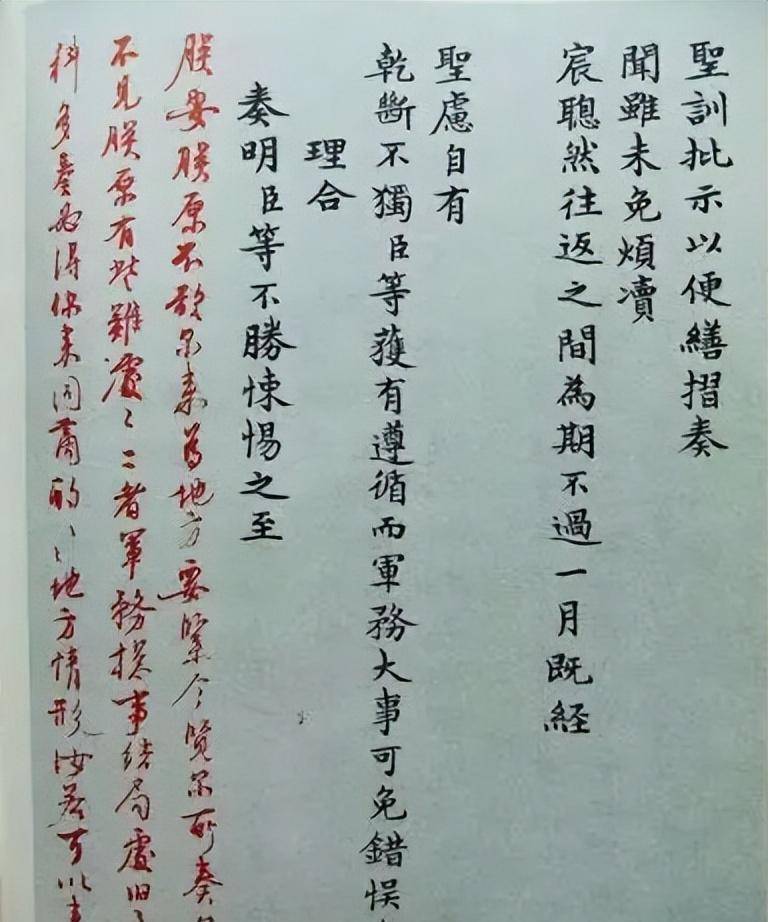 聖訓批示以便繕摺奏
聞雖未免煩瀆
宸聰然往返之間為期不過一月既経
聖慮自有
乾斷不獨臣等獲有遵循而軍務大事可免錯悞
理合
奏明臣等不勝悚惕之至
朕安朕原不欲尔來為地方要緊今覽尔所奏
不見朕原有些難處〻二者軍務摠事結局處旧
科多奏必得你來同商酌〻地方情形汝若可以來